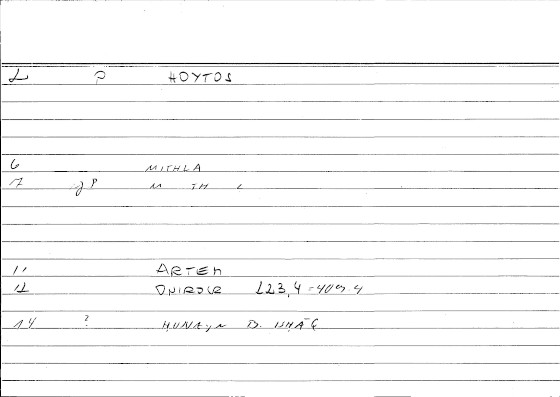 L P HOYTOS
6 MITHLA
7 P M TH L
11 ARTEM
12 ONIROCR 223,4-409,4
14 ? HUNAYN B. ISHĀQ